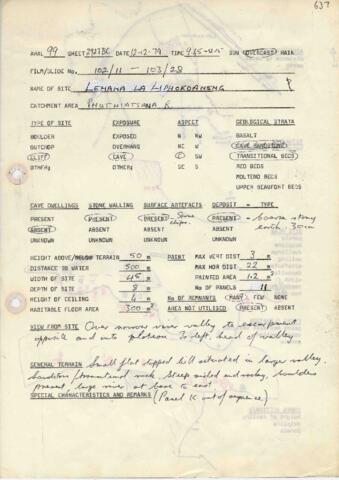 637
ARAL 99 SHEET 2927BC DATE 12-2-79 TIME SUN OVERCAST RAIN
FILM/SLIDE NO. 102/11 - 103/28
NAME OF SITE LEHAHA LA LIPHOKOANENG
CATCHMENT AREA PHUTHIATSANA R.
TYPE OF SITE EXPOSURE ASPECT GEOLOGICAL STRATA
BOULDER EXPOSED N NW BASALT
OUTCROP OVERHANG NE W CAVE SANDSTONE
CLIFF CAVE E SW TRANSITIONAL BEDS
OTHER: OTHER: SE S RED BEDS
MOLTENO BEDS
UPPER BEAUFORT BEDS
CAVE DWELLINGS STONE WALLING SURFACE ARTEFACTS DEPOSIT - TYPE
PRESENT PRESENT PRESENT - Stone chips. PRESENT - coarse stony
ABSENT ABSENT ABSENT ABSENT earth. 30cm
UNKNOWN UNKNOWN UNKNOWN UNKNOWN
HEIGHT ABOVE/BELOW TERRAIN 50 m PAINT MAX VERT DIST 3 m
DISTANCE TO WATER 500 m MAX HOR DIST 22 m
WIDTH OF SITE 45 m PAINTED AREA 1.2 m²
DEPTH OF SITE 8 m NO OF PANELS 11
HEIGHT OF CEILING 4 m NO OF REMNANTS MANY FEW NONE
HABITABLE FLOOR AREA 300 m² AREA NOT UTILISED PRESENT ABSENT
VIEW FROM SITE Over narrow river valley to escarpment
opposite and onto plateau. To left, head of valley
GENERAL TERRAIN Small flat topped hill situated in larger valley.
Sandstone/transitional rock. Steep sided and rocky, boulders
present, large river at base to east
SPECIAL CHARACTERISTICS AND REMARKS (Panel K out of sequence)